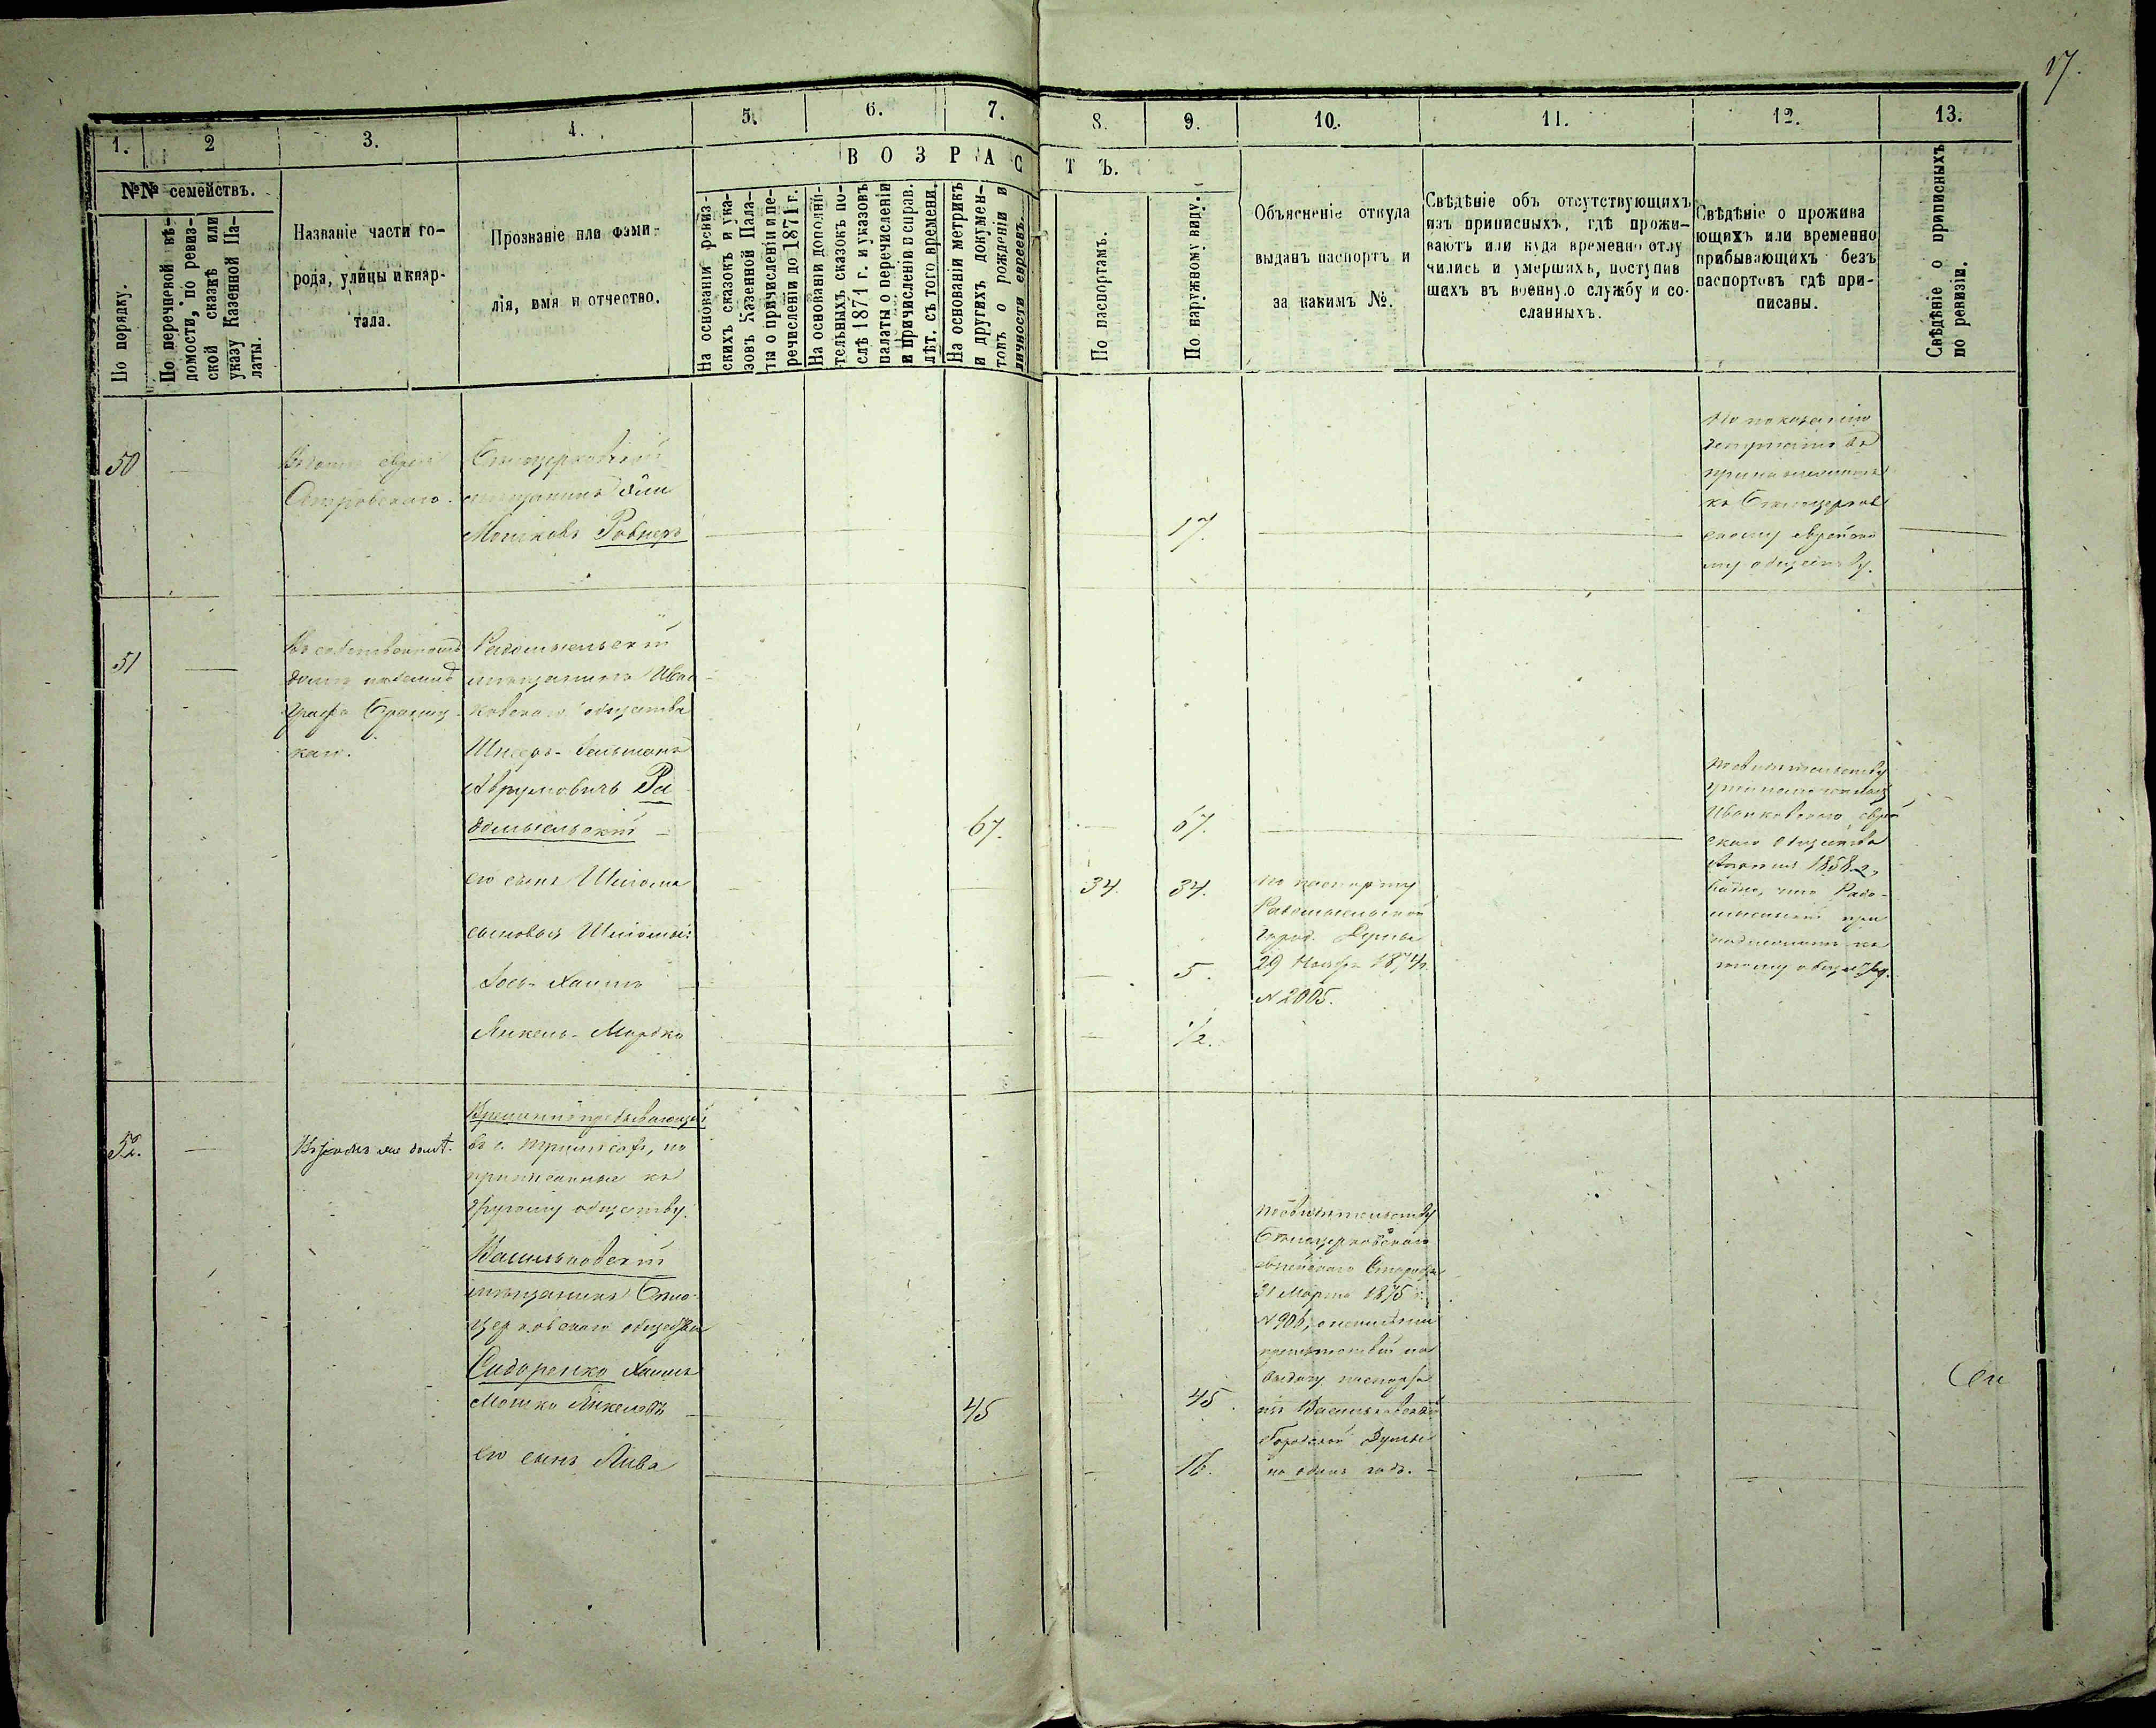 17.
1.
2
3.
4.
5.
6.
7.
8.
9.
10.
11.
12.
13.
ВОЗРАСТЪ.
№№ семействъ.
По порядку.
По перечневой вѣ-
домости, по ревиз-
ской сказкѣ или
указу Казенной Па-
латы.
Названіе части го-
рода, улицы и квар-
тала.
Прозваніе или фами-
лія, имя и отчество.
На основаніи ревиз-
скихъ сказокъ и ука-
зовъ Казенной Пала-
ты о причисленіи и пе-
речисленіи до 1871 г.
На основаніи дополни-
тельныхъ сказокъ по-
слѣ 1871 г. и указовъ
палаты о перечисленіи
и причисленіи и справ.
лѣт. съ того времени.
На основаніи метрикъ
и другихъ докумен-
товъ о рожденіи и
личности евреевъ.
По паспортамъ.
По наружному виду.
Объясненіе откуда
выданъ паспортъ и
за какимъ №.
Свѣдѣніе объ отсутствующихъ
изъ приписныхъ, гдѣ прожи-
ваютъ или куда временно отлу
чились и умершихъ, поступив
шихъ въ военную службу и со-
сланныхъ.
Свѣдѣніе о прожива
ющихъ или временно
прибывающихъ безъ
паспортовъ гдѣ при-
писаны.
Свѣдѣніе о приписныхъ
по ревизіи.
50
Островскаго.
мѣщанинъ
Мошковъ Ровнеръ
17.
По показанію
къ Бѣлоцерков
скому еврейско
му обществу.
51
Въ собственномъ
домѣ на землѣ
графа Браниц-
каго.
Радомысльскій
мѣщанинъ Иван
ковскаго общества
Шнееръ-Зельманъ
Аврумовичъ Ра
домысльскій
67.
67.
Иванковскаго еврей
скаго общества
1858 г.
что Радо-
къ
тому обществу.
его сынъ Шлиома
34.
34.
По паспорту
Радомысльской
город. Думы
29 Ноября 1874 г.
№ 2005.
сыновья Шлиомы:
Іось-Хаимъ
5.
Янкель-Мордко
1/2.
52.
домѣ.
Временно пребывающій
въ с. но
приписанные къ
другому обществу.
Васильковскій
мѣщанинъ Бѣло-
церковскаго общества
Сидоренко Хаимъ
Мошко Янкелевъ
45
45
По свидѣтельству
Бѣлоцерковскаго
еврейскаго Старосты
31 Марта 1875 г.
№ 906,
на
выдачу паспорта
изъ Васильковской
Городской Думы
на одинъ годъ.
его сынъ Лива
16.